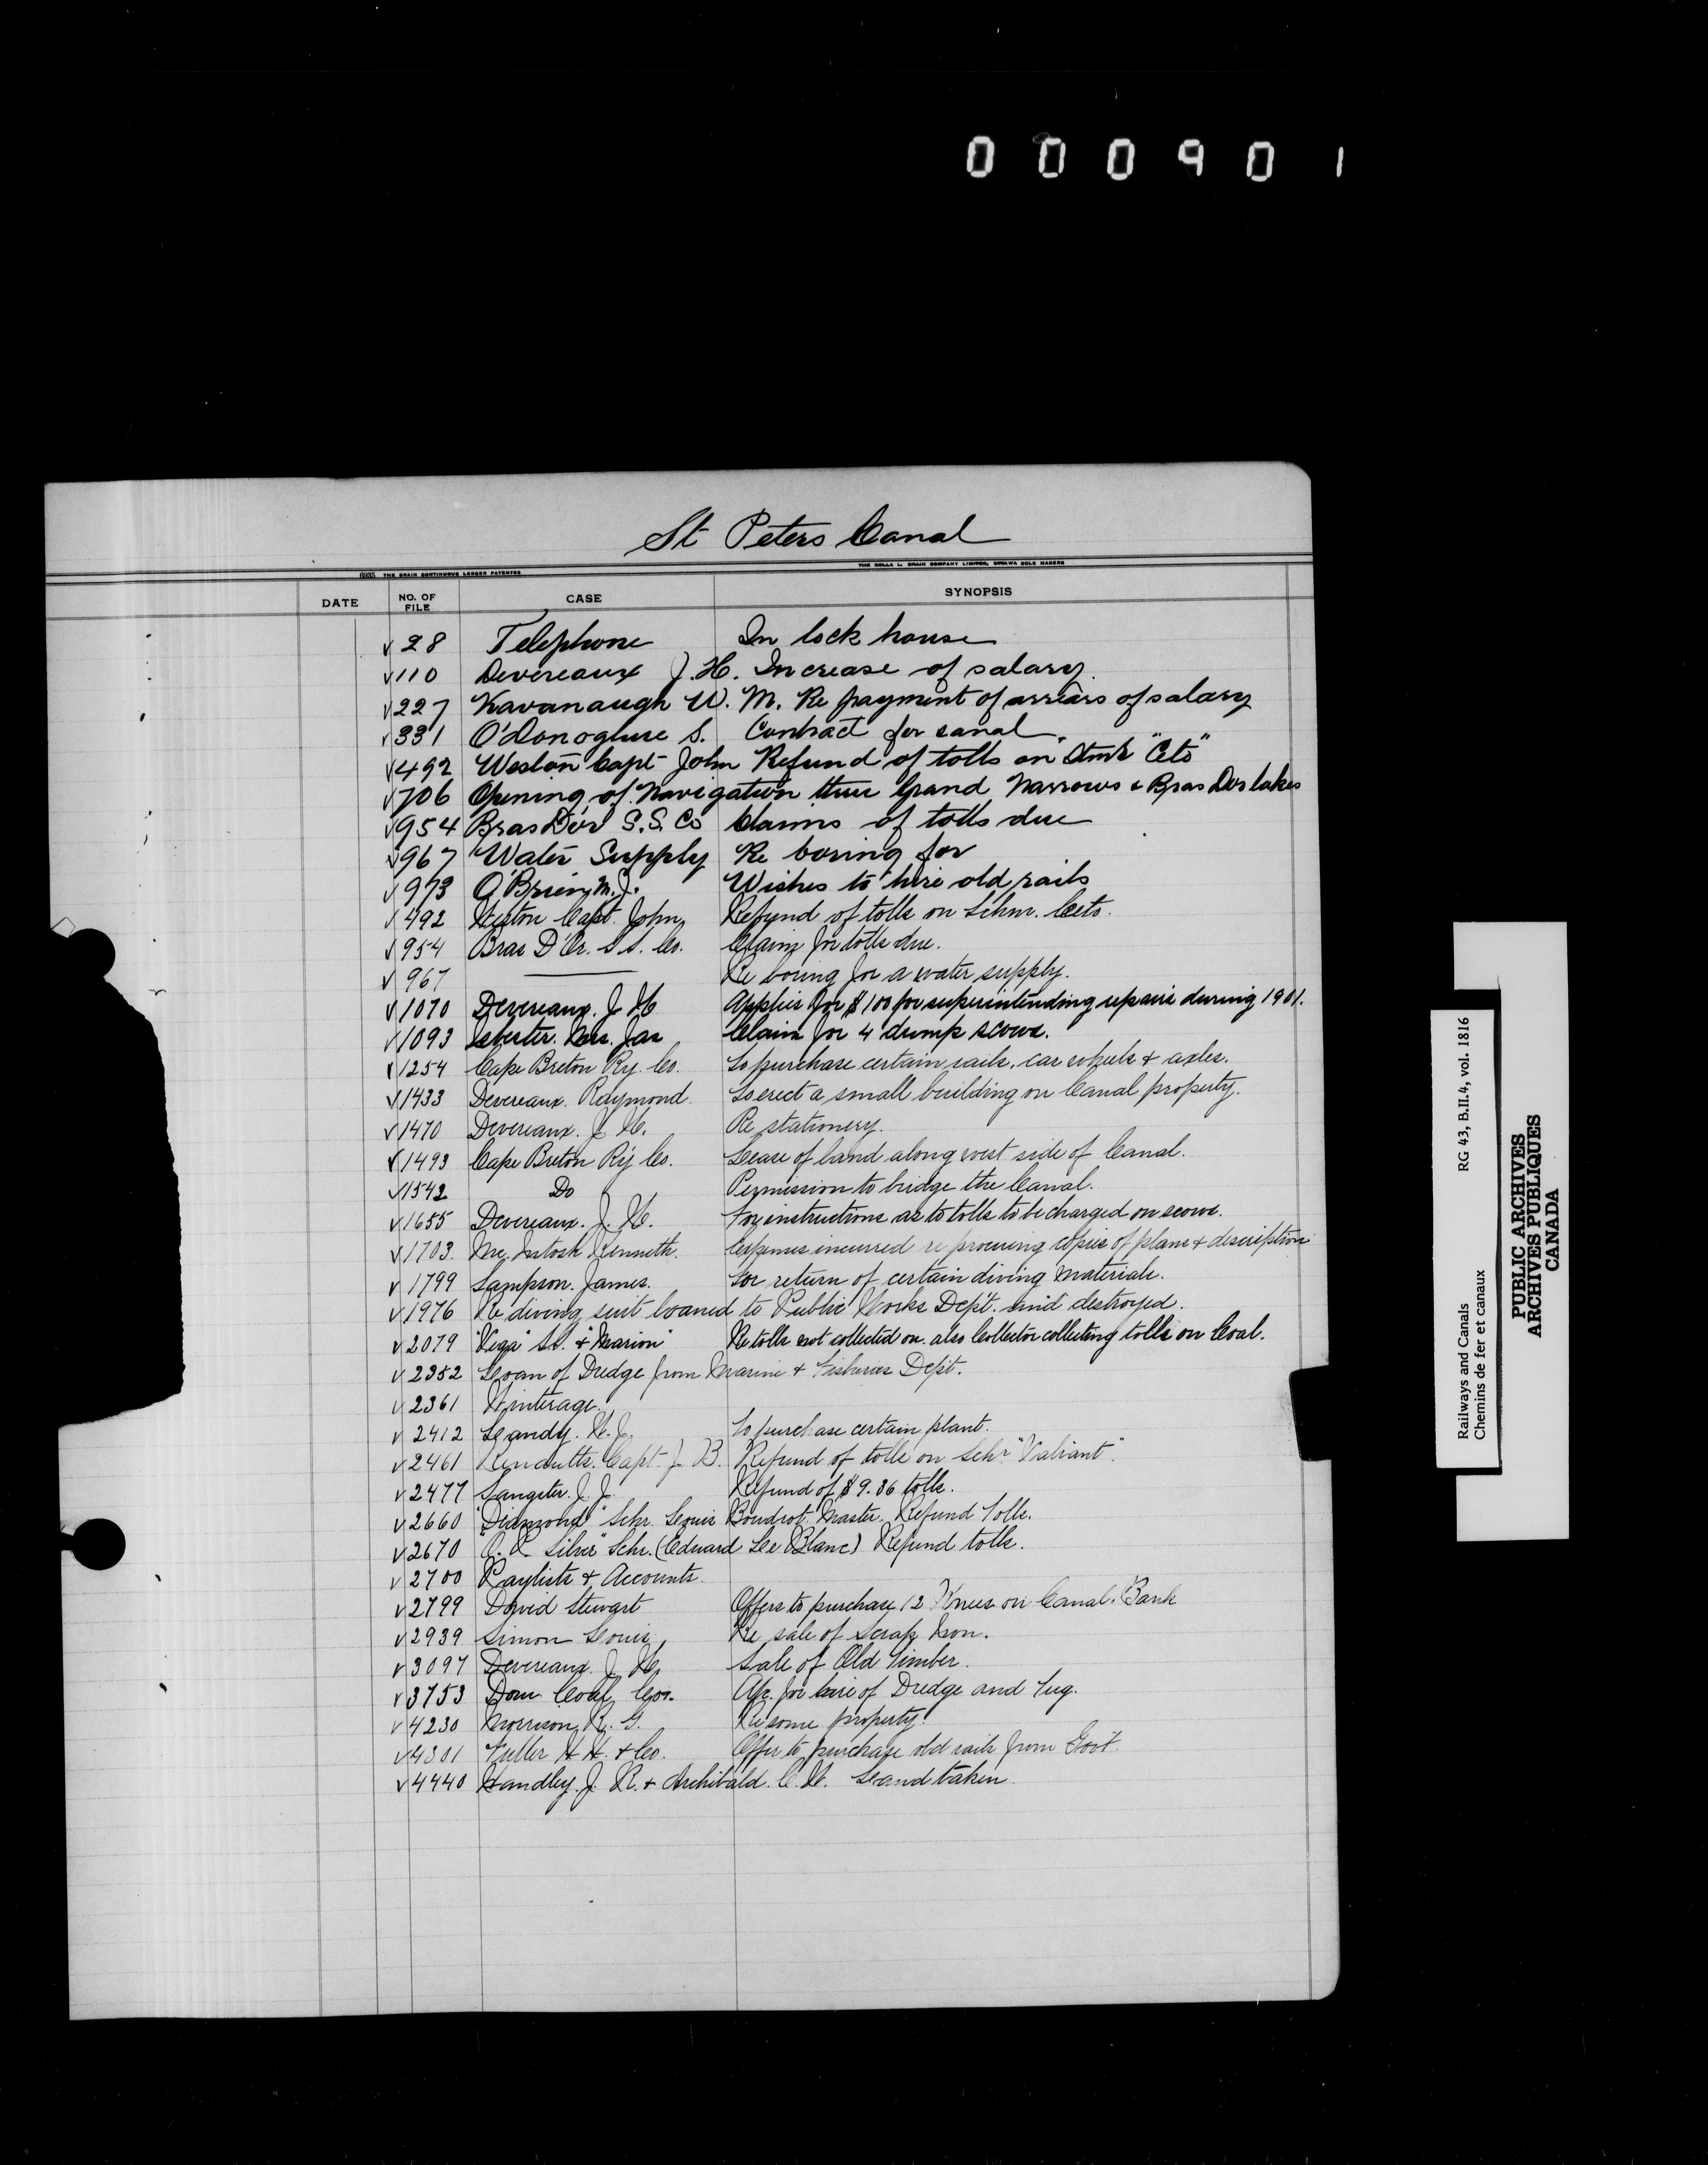 000901
St Peters Canal
THE CRAIN CONTINUOUS LEDGER PATENTED THE ROLLA L. CRAIN COMPANY LIMITED, OTTAWA SOLE MAKERS
DATE NO. OF FILE CASE SYNOPSIS
√ 28 Telephone In lock house
√ 110 Devereaux J. H. Increase of salary
√ 227 Kavanaugh W. M. Re payment of arrears of salary
√ 331 O'Donoghue S. Contract for canal
√ 492 Weston Capt John Refund of tolls on Stmr "Ceto"
√ 706 Opening of Navigation thru Grand Narrows & Bras Dor lakes
√ 954 Bras D'or S.S. Co Claims of tolls due
√ 967 Water Supply Re boring for
√ 973 O'Brien M.J. Wishes to hire old rails
√ 492 Weston Capt. John Refund of tolls on Schnr. Ceto.
√ 954 Bras D'Or. S S. Co. Claim for tolls due.
√ 967 —— Re boring for a water supply.
√ 1070 Devereaux. J. H Applies for $100 for superintending repairs during 1901.
√ 1093 Mrs. Jas Claim for 4 dump scows.
√ 1254 Cape Breton Ry. Co. To purchase certain rails, car wheels & axles.
√ 1433 Devereaux. Raymond To erect a small building on Canal property.
√ 1470 Devereaux. J. H. Re stationery.
√ 1493 Cape Breton Ry Co. Lease of land along west side of Canal.
√ 1542 Do Permission to bridge the Canal.
√ 1655 Devereaux. J. H. For instructions as to tolls to be charged on scows.
√ 1703. McIntosh Kenneth. Expenses incurred re procuring copies of plans & description
√ 1799 Sampson. James. For return of certain diving materials.
√ 1976 Re diving suit loaned to Public Works Dep't. and destroyed.
√ 2079 "Vega" SS. & "Marion" Re tolls not collected on. also Collector collecting tolls on Coal.
√ 2352 Loan of Dredge from Marine & Fisheries Dep't.
√ 2361 Winterage.
√ 2412 Landy. H. J. To purchase certain plant.
√ 2461 Capt. J. B. Refund of tolls on Schr "Valiant".
√ 2477 Sangster. J. J. Refund of $9.36 tolls.
√ 2660 "Diamond" Schr. Louis Boudrot Master. Refund Tolls.
√ 2670 Silver" Schr. (Edward Le Blanc) Refund tolls.
√ 2700 Paylists & Accounts.
√ 2799 David Stewart Offers to purchase 12 Knees on Canal Bank
√ 2939 Simon Louis Re sale of Scrap Iron.
√ 3097 Devereaux. J. H. Sale of Old Timber.
√ 3753 Dom Coal Co. Ap. for hire of Dredge and Tug.
√ 4230 Morrison R. G. Re some property.
√ 4301 Fuller H. H. & Co. Offer to purchase old rails from Govt.
√ 4440 Handley. J. R. & Archibald. C. H. Land taken.
Railways and Canals RG 43, B.II.4, vol. 1816
Chemins de fer et canaux
PUBLIC ARCHIVES
ARCHIVES PUBLIQUES
CANADA